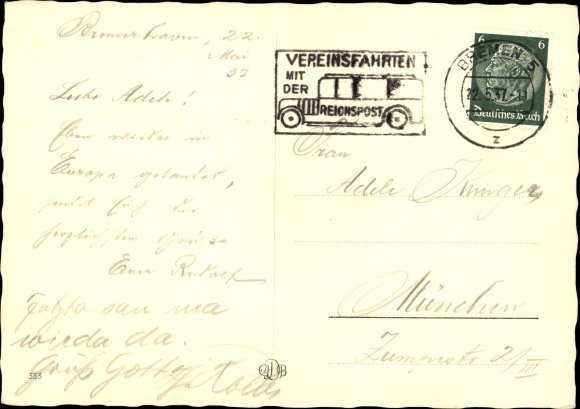 Bremerhaven, 22.
Mai
37
Liebe Adele!
Eben wieder in
Europa gelandet,
sendet Euch die
herzlichsten Grüße
Euer Rudolf
Jatzta san ma
wieda da.
Grüß Gott
383
VEREINSFAHRTEN
MIT
DER
REICHSPOST
BREMEN 5
22.5.37
z
6 6
Deutsches Reich
Frau
Adele
München
Zumpestr 2/III